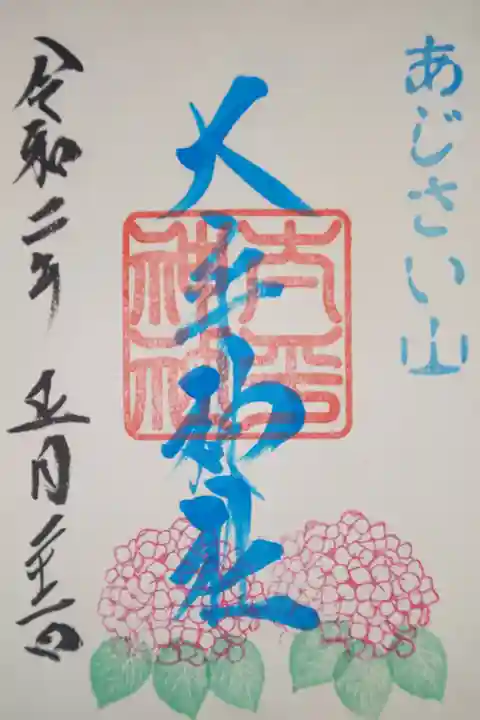 あじさい山
大平神社
令和二年 五月